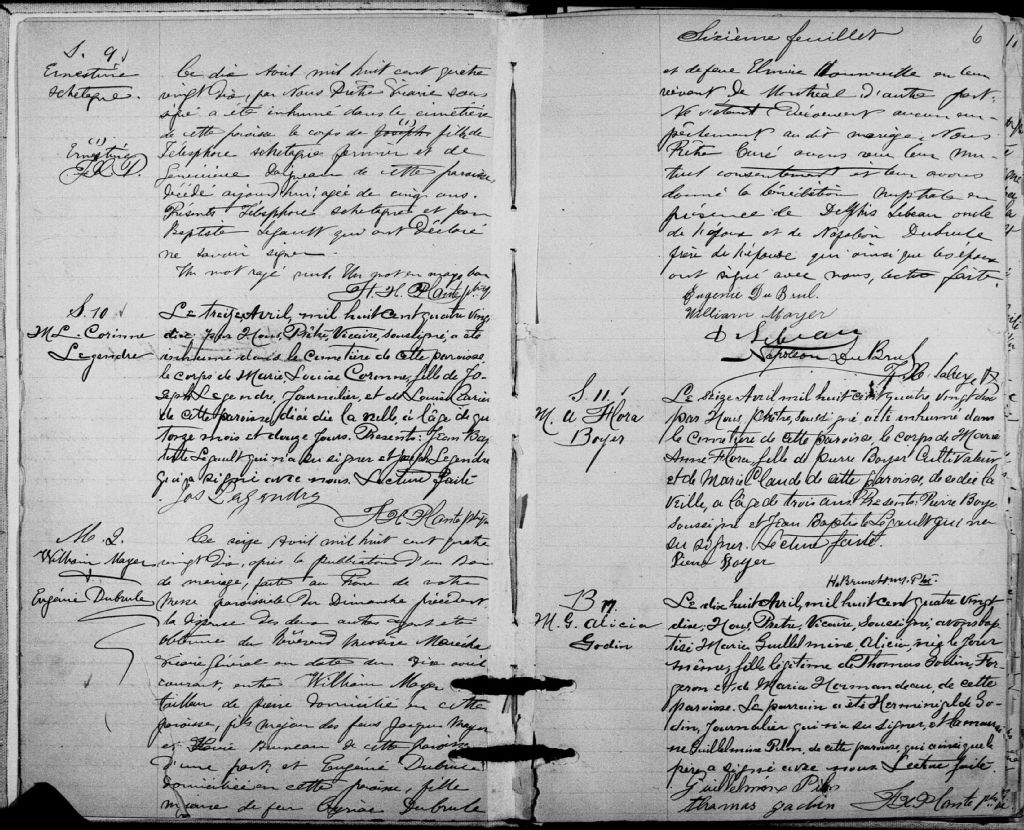 S. 9
Ernestine
Schetagne.
(1)
Ernestine
Ce dix Avril mil huit cent quatre
vingt dix, par Nous Prêtre Vicaire sous
signé a été inhumé dans le cimetière
de cette paroisse le corps de Joseph (1) fille de
Télesphore Schetagne fermier et de
Geneviève Daigneau de cette paroisse
décédé aujourd'hui agée de cinq ans.
Présents Télesphore Schetagne et Jean
Baptiste Légault qui ont déclaré
ne savoir signer.
Un mot rayé nul. Un mot en marge bon
H. H. Plante ptre
S. 10
M. L. Corinne
Legendre
Le treize Avril, mil huit cent quatre vingt
dix, par Nous, Prêtre, Vicaire, soussigné, a été
inhumé dans le cimetière de cette paroisse,
le corps de Marie Louise Corinne, fille de Jo-
seph Legendre, Journalier, et de Louise
de cette paroisse, décédée la veille, à l'âge de qua
torze mois et douze jours. Présents: Jean Bap
tiste Legault qui n'a su signer et Joseph Legendre
qui a signé avec nous. Lecture faite
Jos Lagendre
H. H. Plante ptre
M. 2.
William Mayer
Eugénie Dubrule
Ce seize Avril mil huit cent quatre
vingt dix, après la publication d'un ban
de mariage, faite au Prone de notre
messe paroissiale du Dimanche précédent
la dispense des deux autres ayant été
obtenue du Révérend Messire Maréchal
Vicaire Général en date du dix avril
courant, entre William Mayer
tailleur de pierre domicilié en cette
paroisse, fils majeur des feus Jacques Mayer
et Bruneau de cette paroisse
d'une part, et Eugénie Dubrule
domiciliée en cette paroisse, fille
mineure de feu Cyriac Dubrule
Sixième feuillet 6
et de feue Elmire en leur
vivant de Montréal d'autre part.
Ne s'étant découvert aucun em-
pêchement au dit mariage, Nous
Prêtre Curé avons reçu leur mu-
tuel consentement et leur avons
donné la bénédiction nuptiale en
présence de Delphis Lebeau oncle
de l'époux et de Napoléon Dubrule
frère de l'épouse qui ainsi que les époux
ont signé avec nous, lecture faite.
Eugenie DuBrul.
William Mayer
D. Lebeau
Napoléon DuBrul
S. 11
M. A Flora
Boyer
Le seize Avril mil huit cent quatre vingt dix
par Nous, prêtre, soussigné, a été inhumé dans
le cimetière de cette paroisse, le corps de Marie
Anne Flora, fille de Pierre Boyer Cultivateur
et de Marie Claude de cette paroisse, décédée la
veille, a l'âge de trois ans. Présents: Pierre Boyer
soussigné et Jean Baptiste Legault qui n'a
su signer. Lecture faite.
Pierre Boyer
B 17.
M. G. Alicia
Godin
Le dix huit Avril, mil huit cent quatre vingt
dix; Nous, Prêtre, Vicaire, soussigné, avons bap
tisé Marie Guillelmine Alicia, née le jour
même, fille légitime de Thomas Godin, For-
geron et de Maria Normandeau, de cette
paroisse. Le parrain a été Herménégilde Go-
din, Journalier qui n'a su signer, et la marrai
ne Guillelmine Pilon, de cette paroisse, qui ainsi que le
père a signé avec nous Lecture faite.
Guillelmine Pilon
thomas godin
H. H. Plante ptre